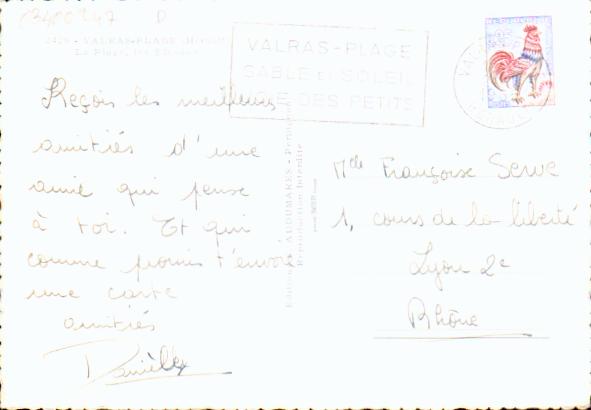 03400947 D
2429 - VALRAS-PLAGE (Hérault)
La Plage, les
VALRAS-PLAGE
SABLE et SOLEIL
JOIE DES PETITS
Reçois les meilleures
amitiés d'une
amie qui pense
à toi. Et qui
comme promis t'envoie
une carte
amitiés
Danièle
Editions AUDUMARES - Perpignan
Reproduction Interdite
Mlle Françoise Serve
1, cours de la liberté
Lyon 2e
Rhône